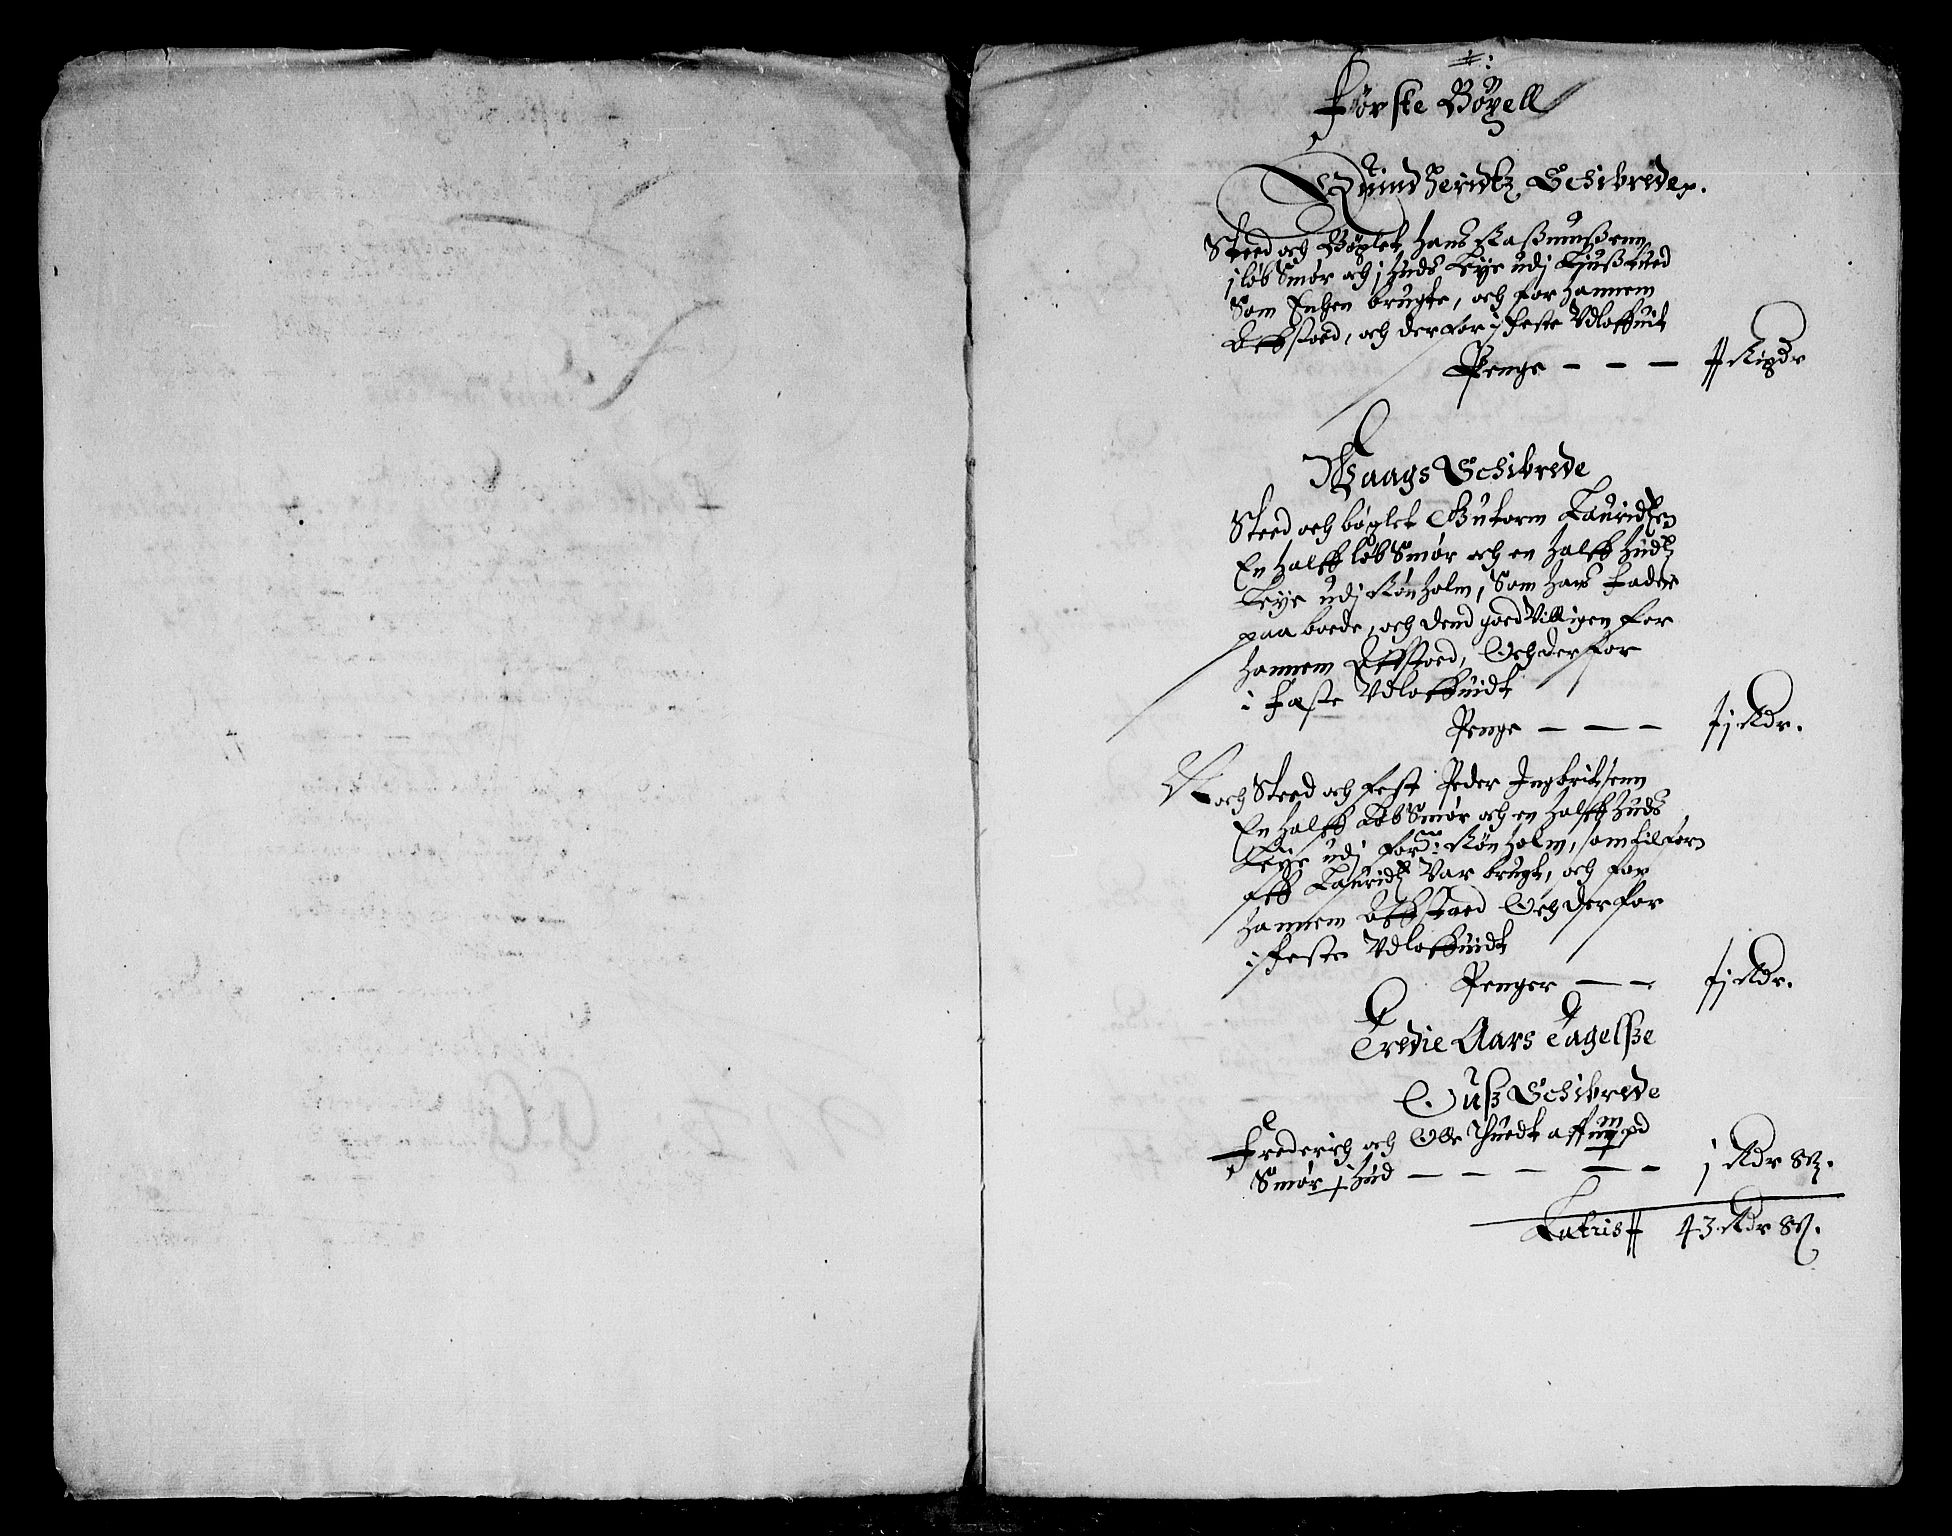 Første Bøxell
Quindheridtz Schibrede.
Sted och Bøxlet Hans Rasmussen
j løb Smør och j huds Leye udj
Som Enken brugte, och for hannem
Affstoed, och derfor i feste Udloffuit
Penge — — — Rixdr
Waags Schibrede
Sted och bøxlet Gutorm Lauridtzen
En halff løb Smør och en halff hudtz
Leye udj Rønholm, Som hans Fader
paa boede, och dend goedvilligen for
hannem Affstoed, Och derfor
i Fæste Udloffuidt
Penge — — — Rdr.
Noch Sted och fest Peder Ingbritsenn
En halff Løb Smør och en halff huds
Leye udj ford: Rønholm, som tilforn
aff Lauridtz var brugt, och for
hannem Affstaed Och derfor
i feste Udloffuidt
Penger — — Rdr.
Tredie Aars Tagelsse
Ouss Schibrede
Frederich och Olle Thuedt aff pd
Smør hud — — — — — j Rdr
Lateris 43 Rdr